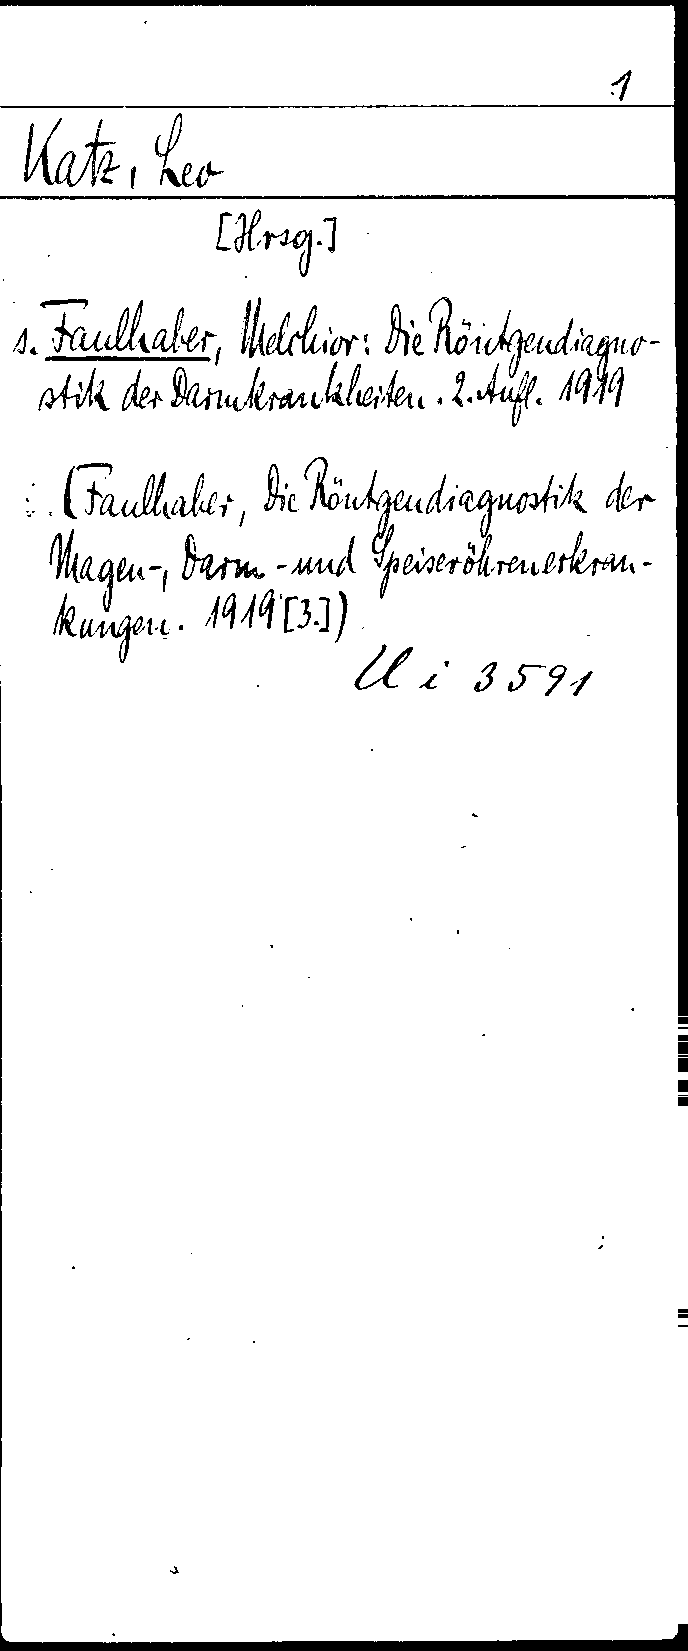 1
Katz, Leo
[Hrsg.]
s. Faulhaber, Melchior: Die Röntgendiagno-
stik der Darmkrankheiten. 2. Aufl. 1919
(Faulhaber, Die Röntgendiagnostik der
Magen-, Darm- und Speiseröhrenerkran-
kungen. 1919 [3.])
U i 3591